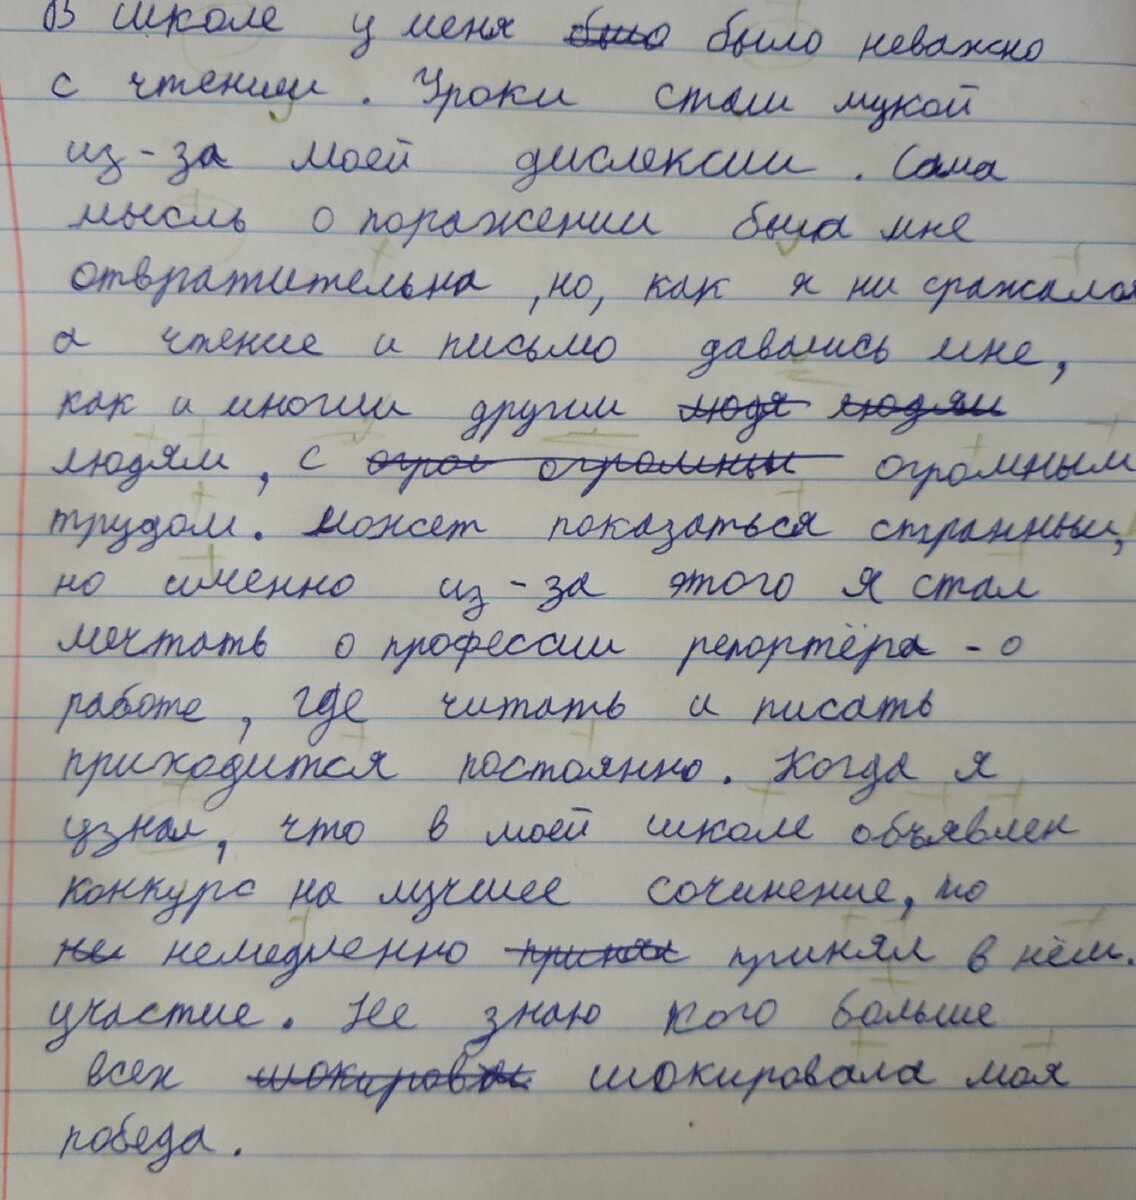 В школе у меня было было неважно
с чтением. Уроки стали мукой
из-за моей дислексии. Сама
мысль о поражении была мне
отвратительна, но, как я ни сражался
а чтение и письмо давались мне,
как и многим другим людя людям
людям, с огром огромным огромным
трудом. Может показаться странным,
но именно из-за этого я стал
мечтать о профессии репортёра - о
работе, где читать и писать
приходится постоянно. Когда я
узнал, что в моей школе объявлен
конкурс на лучшее сочинение, то
не немедленно принял принял в нём.
участие. Не знаю кого больше
всех шокировал шокировала моя
победа.